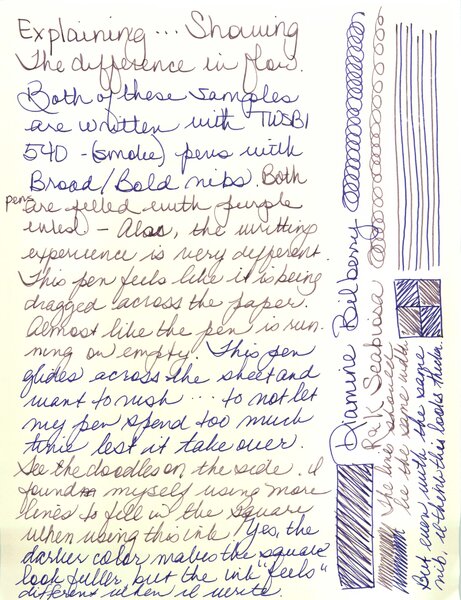 Explaining... Showing
the difference in flow.
Both of these samples
are written with TWSBI
540 - (smoke) pens with
Broad/Bold nibs. Both
pens
are filled with purple
inks! - Also, the writting
experience is very different.
This pen feels like it is being
dragged across the paper.
Almost like the pen is run-
ning on empty. This pen
glides across the sheet and
want to rush ... to not let
my pen spend too much
time lest it take over.
See the doodles on the side. I
found myself using more
lines to fill in the square
when using this ink! Yes, the
darker color makes the square
look fuller, but the ink "feels"
different when I write.
Diamine Bilberry
R&K Scabiosa
The line should
be the same width
But even with the same
nib, is think this looks thicker.